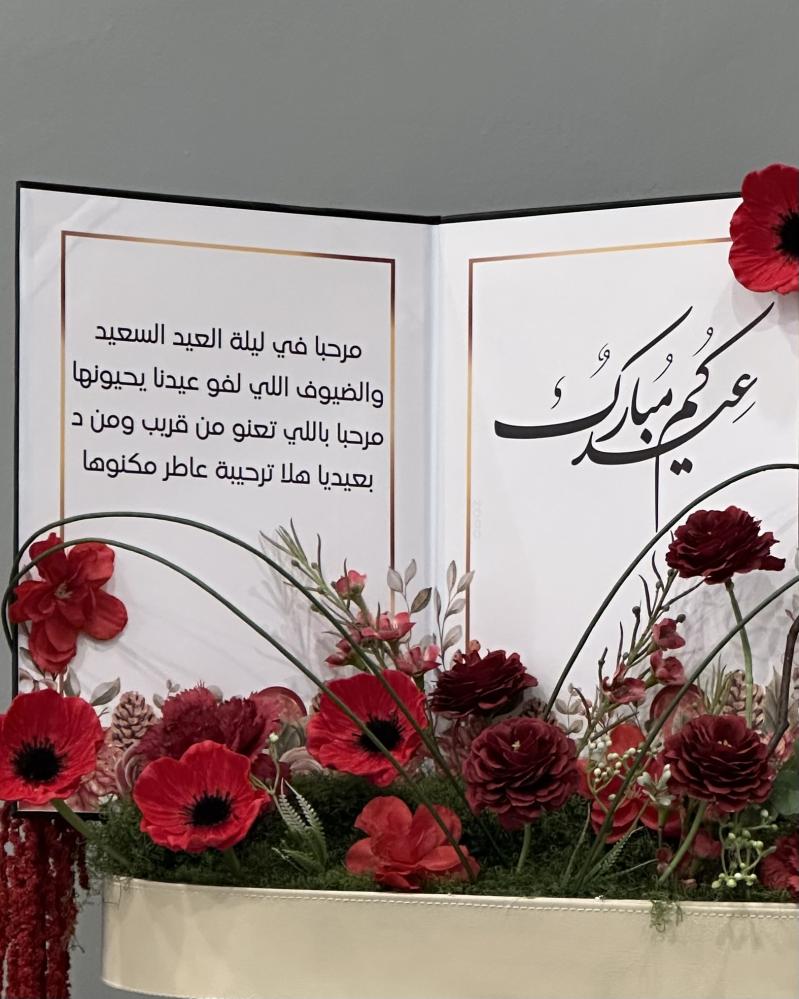 مرحبا في ليلة العيد السعيد
والضيوف اللي لفو عيدنا يحيونها
مرحبا باللي تعنو من قريب ومن د
بعيديا هلا ترحيبة عاطر مكنوها
عيدكم مبارك